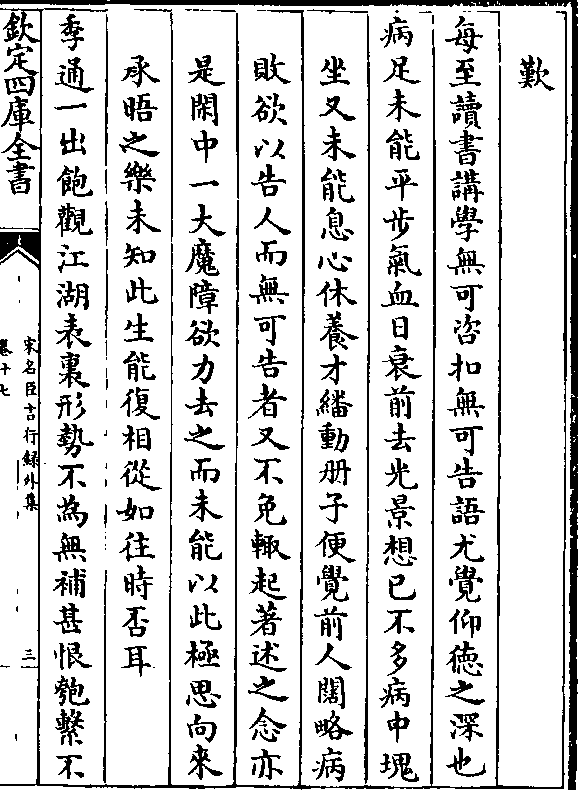 歎
每至讀書講學無可咨扣無可告語尤覺仰徳之深也
病足未能平步氣血日衰前去光景想已不多病中塊
坐又未能息心休養才繙動册子便覺前人闊略病
敗欲以告人而無可告者又不免輙起著述之念亦
是閑中一大魔障欲力去之而未能以此極思向來
承晤之樂未知此生能復相從如往時否耳
季通一出飽觀江湖表裏形勢不為無補甚恨匏繫不
欽定四庫全書
宋名臣言行録外集
卷十七
三